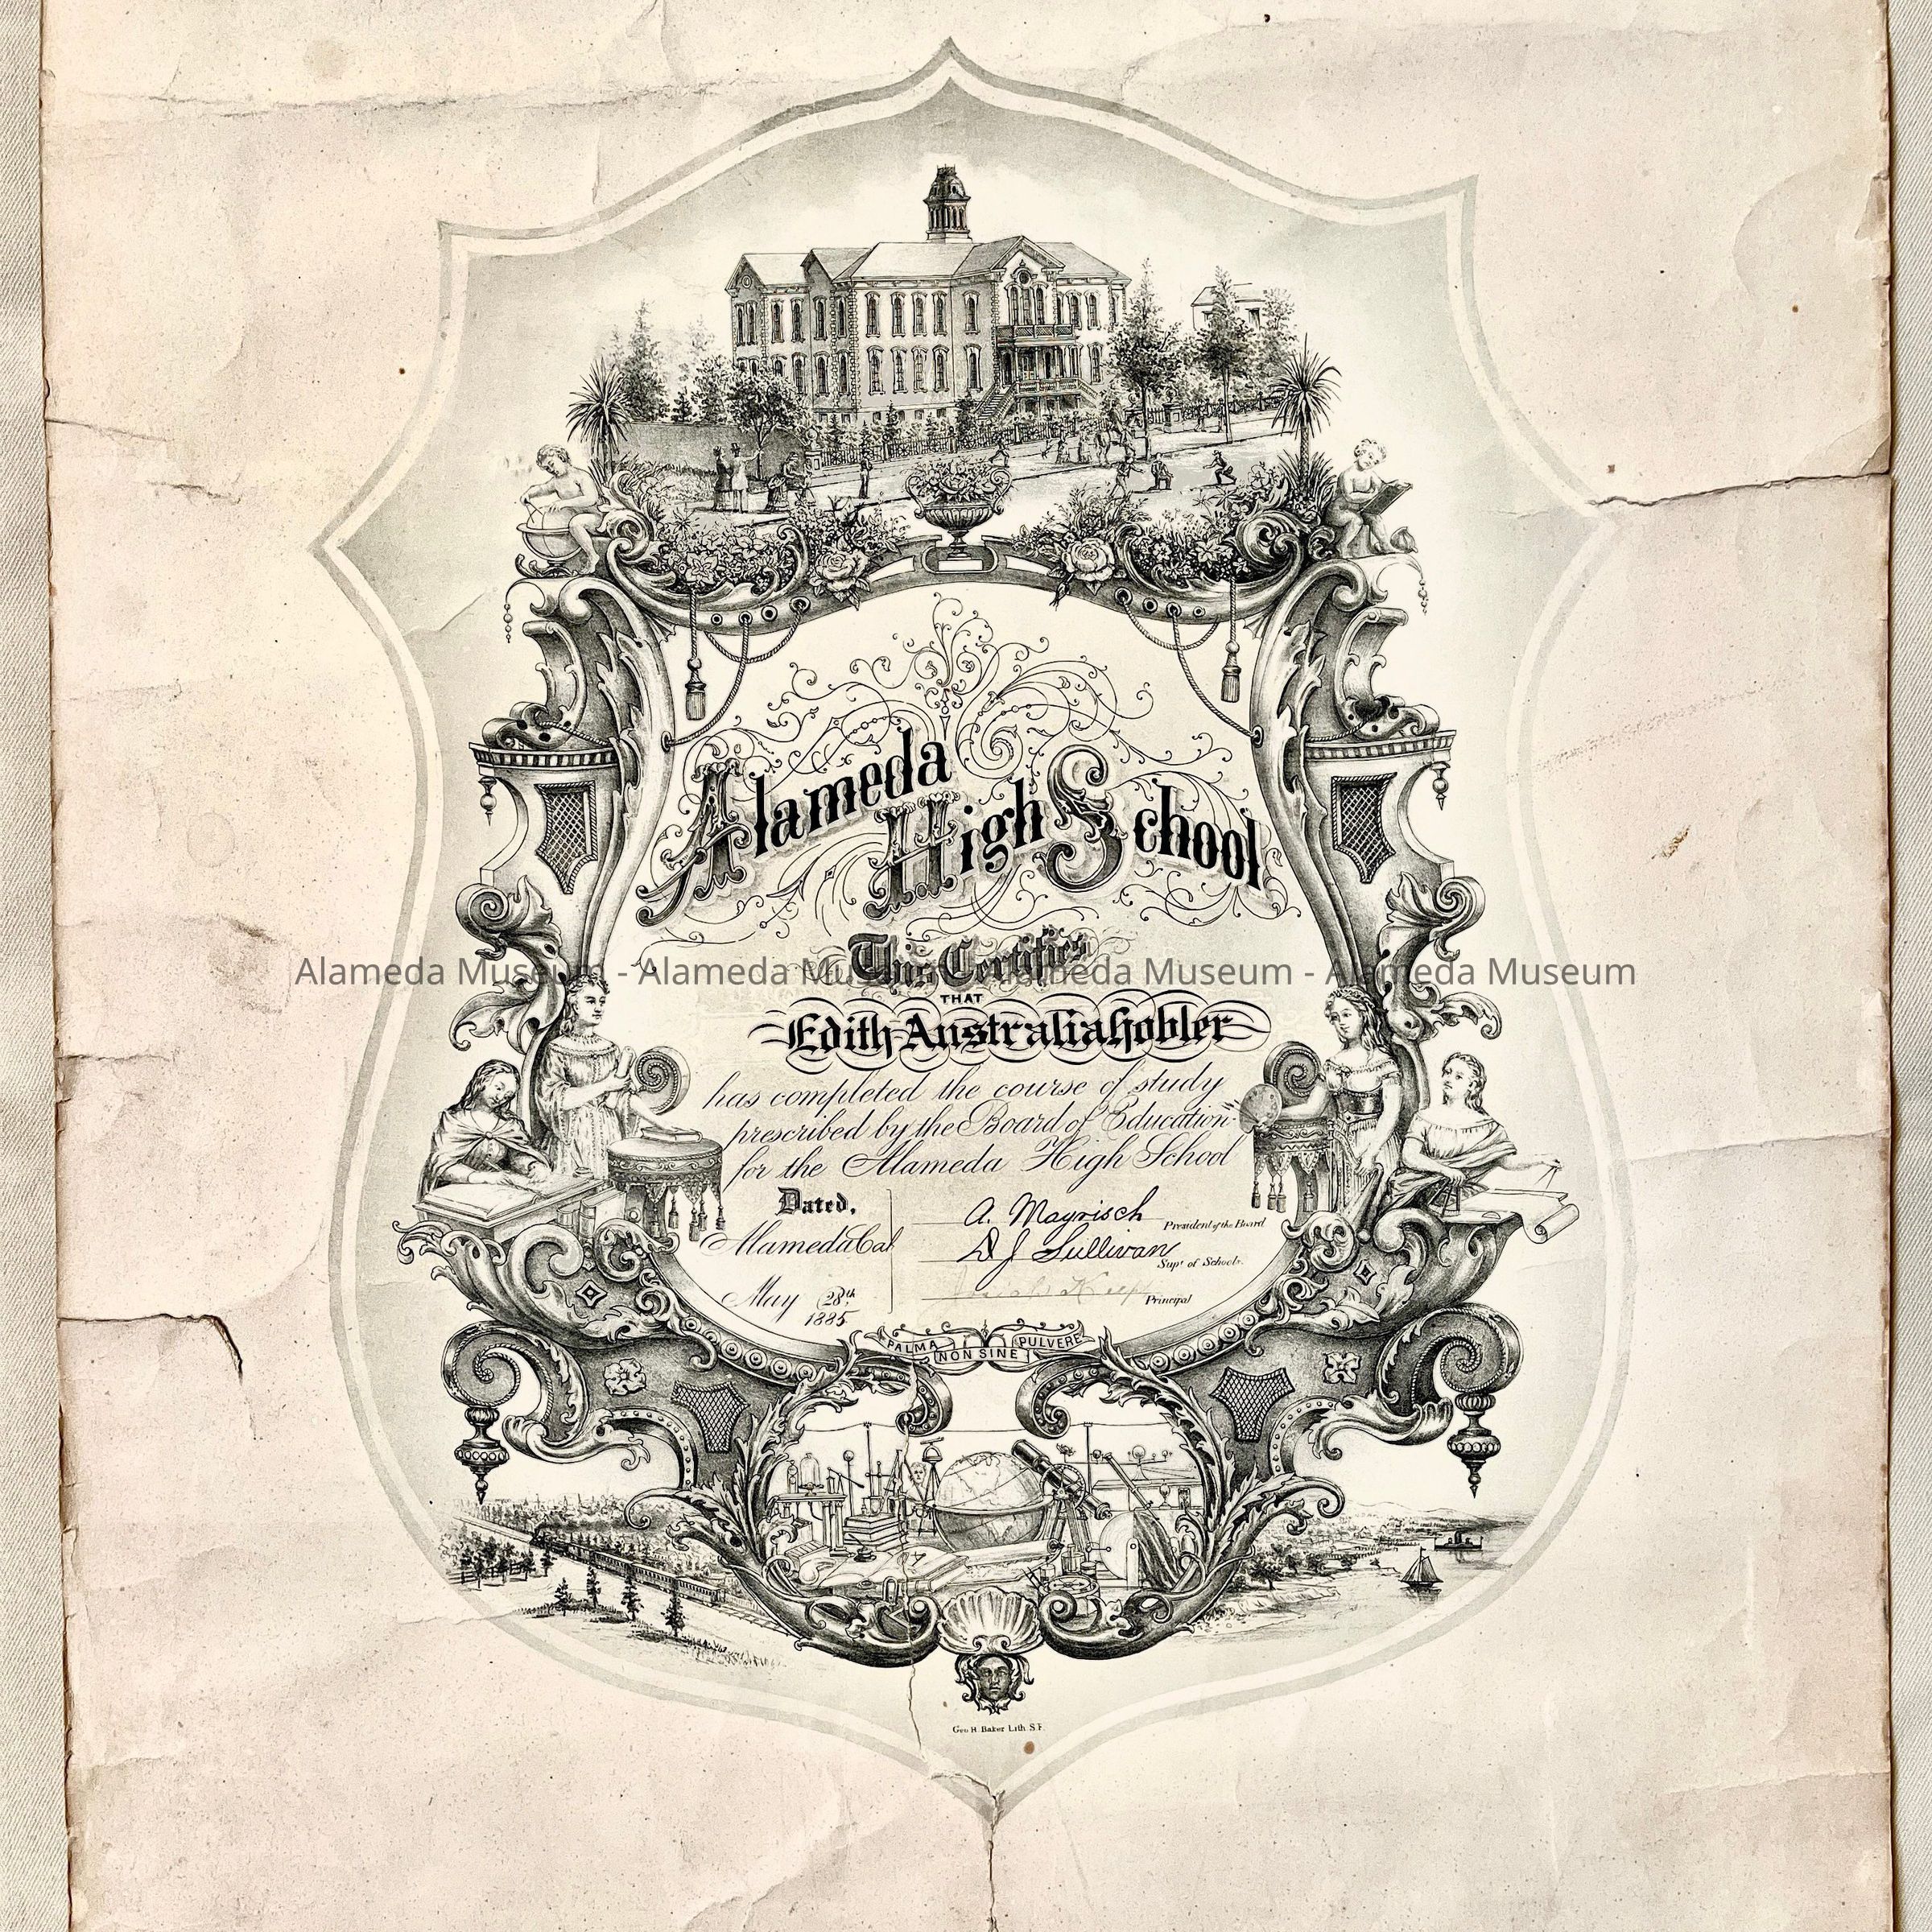 Alameda
High School
This Certifies
Alameda Museum - Alameda Museum - Alameda Museum - Alameda Museum
THAT
Edith Australia Hobler
has completed the course of study
prescribed by the Board of Education
for the Alameda High School
Dated,
Alameda Cal
May 28th
1885
A. Mayrisch
President of the Board
D J Sullivan
Supt of Schools.
Principal
PALMA NON SINE PULVERE
Geo H. Baker Lith S.F.